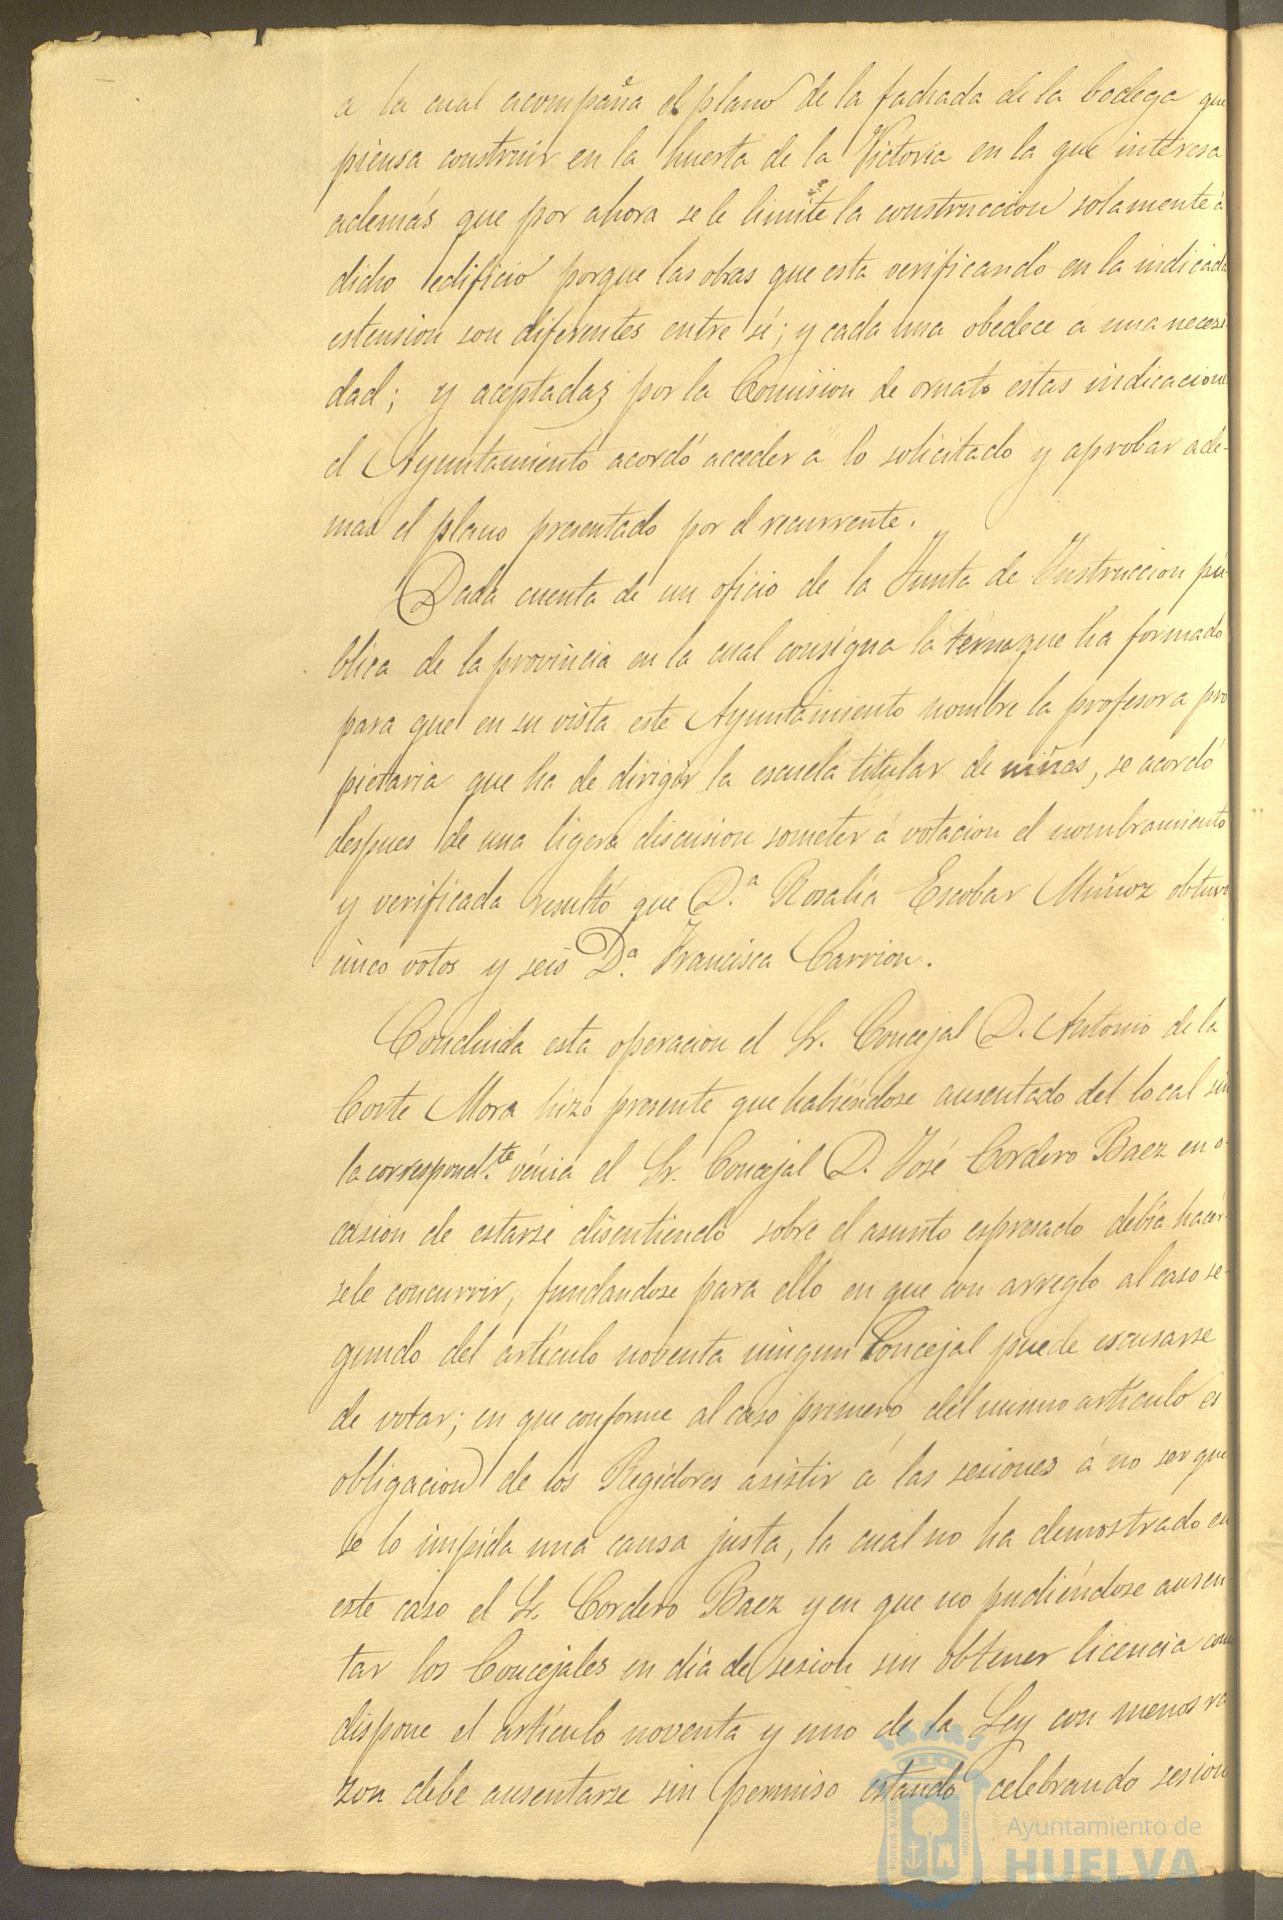 a la cual acompaña el plano de la fachada de la bodega que
piensa construir en la huerta de la Victoria en la que interesa
además que por ahora se le limite la construccion solamente á
dicho edificio porque las obras que esta verificando en la indicada
estension son diferentes entre sí; y cada una obedece á una necesi-
dad; y aceptadas por la Comision de ornato estas indicaciones
el Ayuntamiento acordó acceder á lo solicitado y aprobar ade-
más el plano presentado por el recurrente.
Dada cuenta de un oficio de la Junta de Instruccion pú-
blica de la provincia en la cual consigna la terna que ha formado
para que en su vista este Ayuntamiento nombre la profesora pro
pietaria que ha de dirigir la escuela titular de niñas, se acordó
despues de una ligera discusion someter á votacion el nombramiento
y verificada resultó que D.ª Rosalía Escobar Muñoz obtuvo
cinco votos y seis D.ª Francisca Carrion.
Concluida esta operacion el Sr. Concejal D. Antonio de la
Corte Mora hizo presente que habiéndose ausentado del local sin
la correspond.te vénia el Sr. Concejal D. José Cordero Baez en o-
casion de estarse discutiendo sobre el asunto espresado debía hacér-
sele concurrir, fundandose para ello en que con arreglo al caso se-
gundo del artículo noventa ningun Concejal puede escusarse
de votar; en que conforme al caso primero del mismo artículo es
obligacion de los Regidores asistir á las sesiones á no ser que
se lo impida una causa justa, la cual no ha demostrado en
este caso el Sr. Cordero Baez y en que no pudiéndose ausen
tar los Concejales en día de sesion sin obtener licencia como
dispone el artículo noventa y uno de la Ley con menos ra
zon debe ausentarse sin permiso estando celebrando sesion
Ayuntamiento de
HUELVA